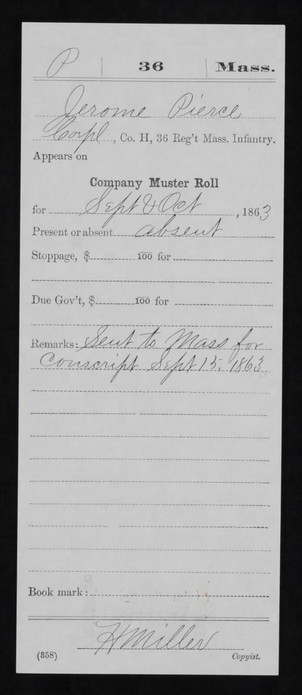 P | 36 | Mass.
Jerome Pierce
Corpl, Co. H, 36 Reg't Mass. Infantry.
Appears on
Company Muster Roll
for Sept & Oct, 1863
Present or absent absent
Stoppage, $ 100 for
Due Gov't, $ 100 for
Remarks: Sent to Mass for
conscript Sept 15, 1863
Book mark:
H Miller
(358) Copyist.